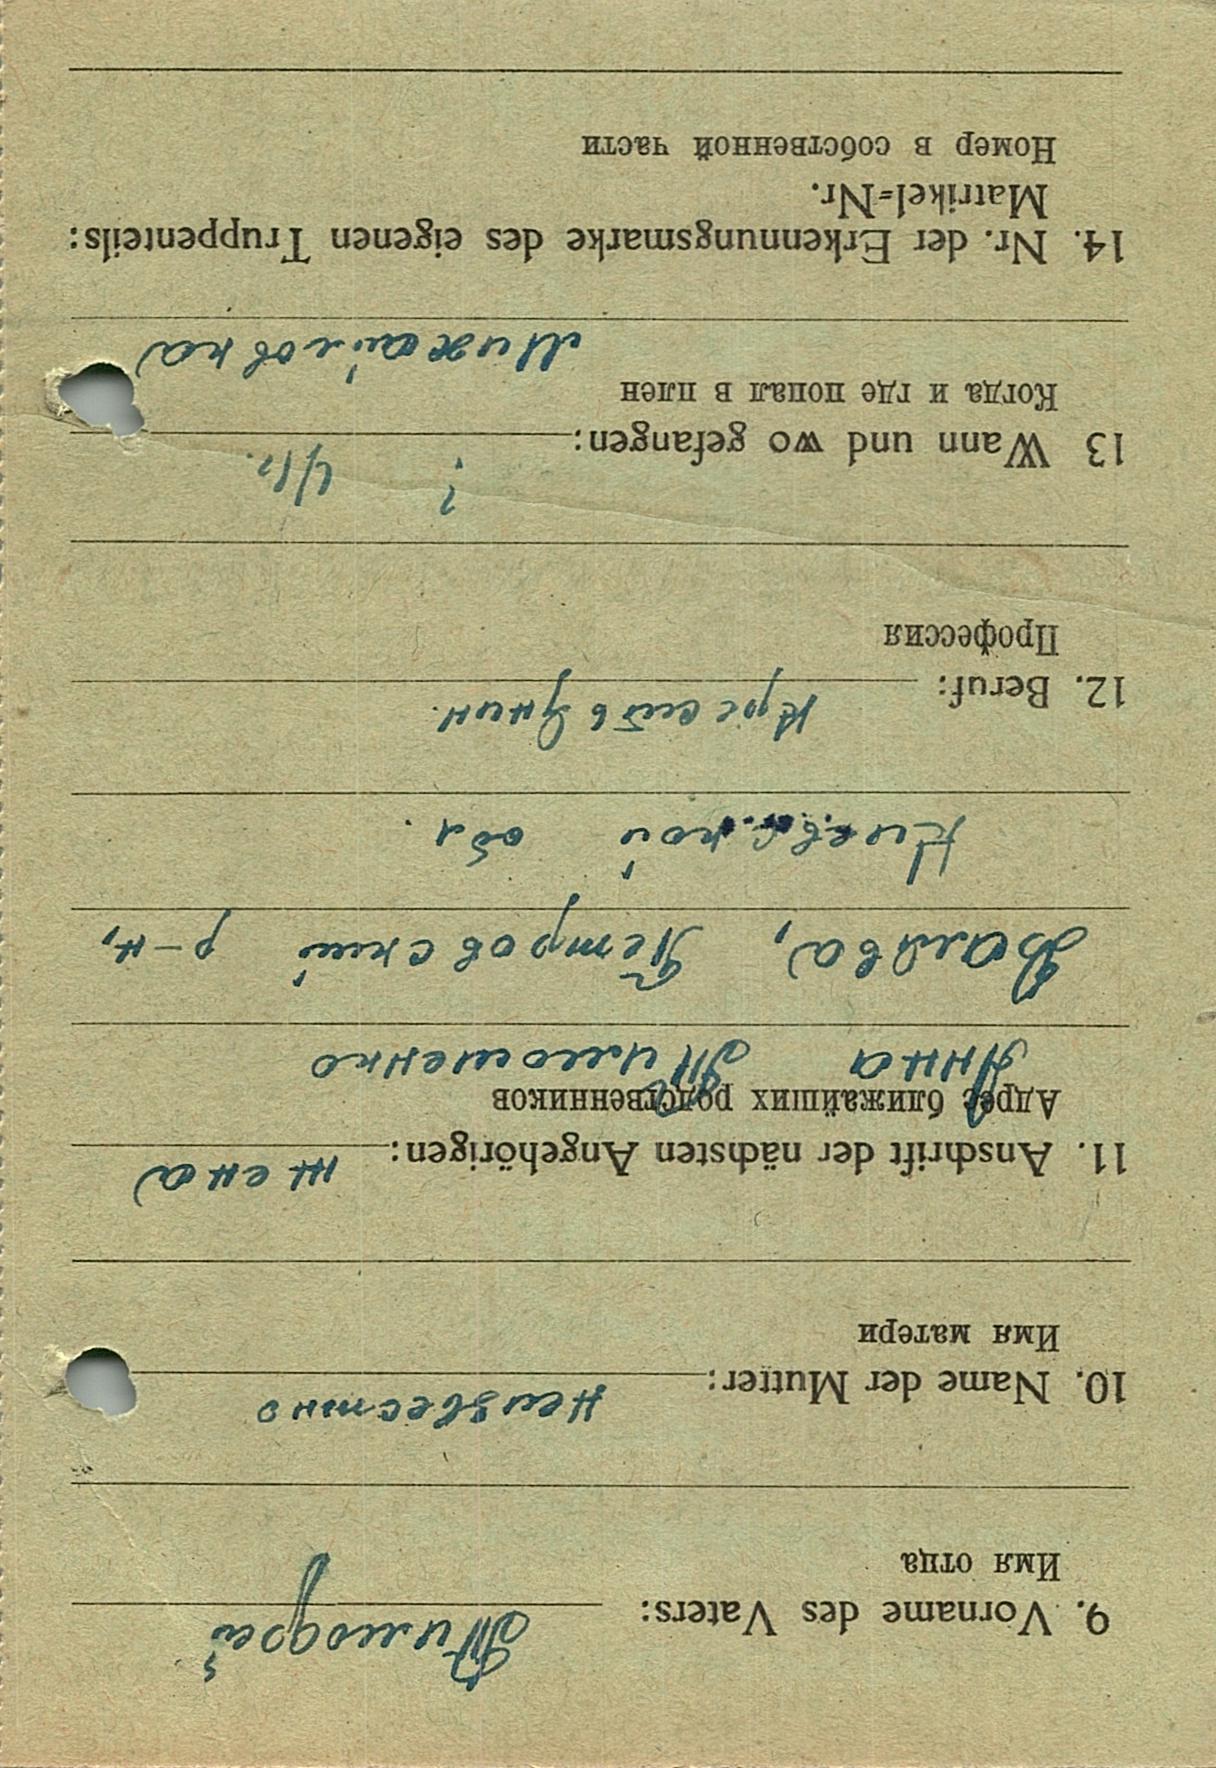 9. Vorname des Vaters: Тимофей
Имя отца
10. Name der Mutter: неизвестно
Имя матери
11. Anschrift der nächsten Angehörigen: жена
Адрес ближайших родственников
Анна Тимошенко
Валява, Петровский р-н,
Киевской обл.
12. Beruf: крестьянин.
Профессия
13 Wann und wo gefangen: ?
Когда и где попал в плен
Михайловка
14. Nr. der Erkennungsmarke des eigenen Truppenteils:
Matrikel=Nr.
Номер в собственной части